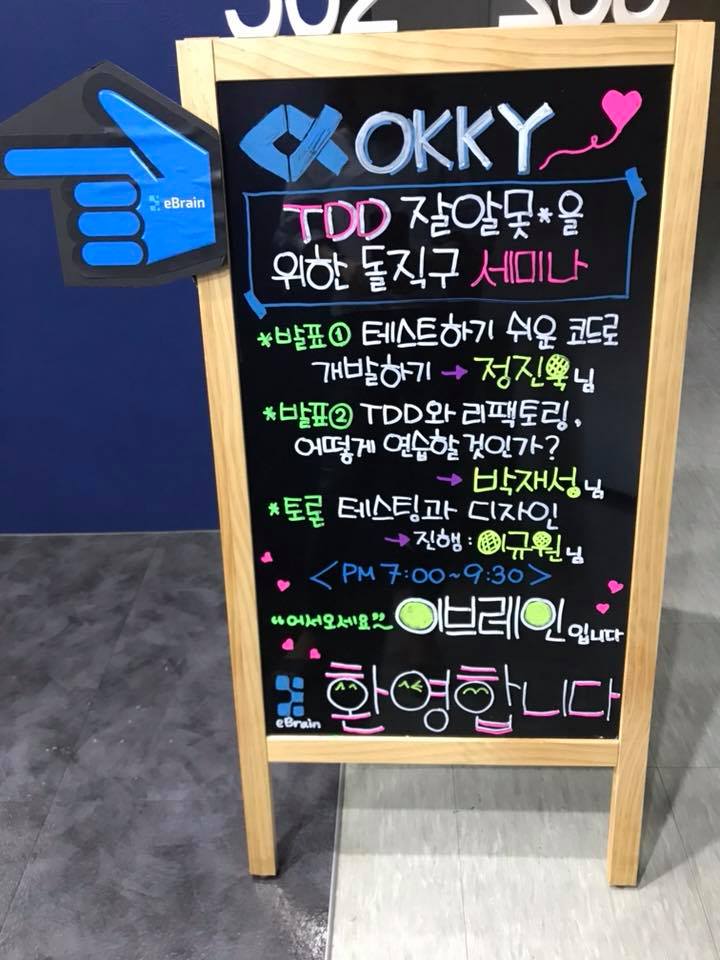 eBrain
OKKY
TDD 잘알못*을
위한 돌직구 세미나
*발표① 테스트하기 쉬운 코드로
개발하기 → 정진욱님
*발표② TDD와 리팩토링,
어떻게 연습할 것인가?
→ 박재성님
*토론 테스팅과 디자인
→ 진행 : 이규원님
<PM 7:00~9:30>
"어서오세요" 이브레인입니다
eBrain 환영합니다